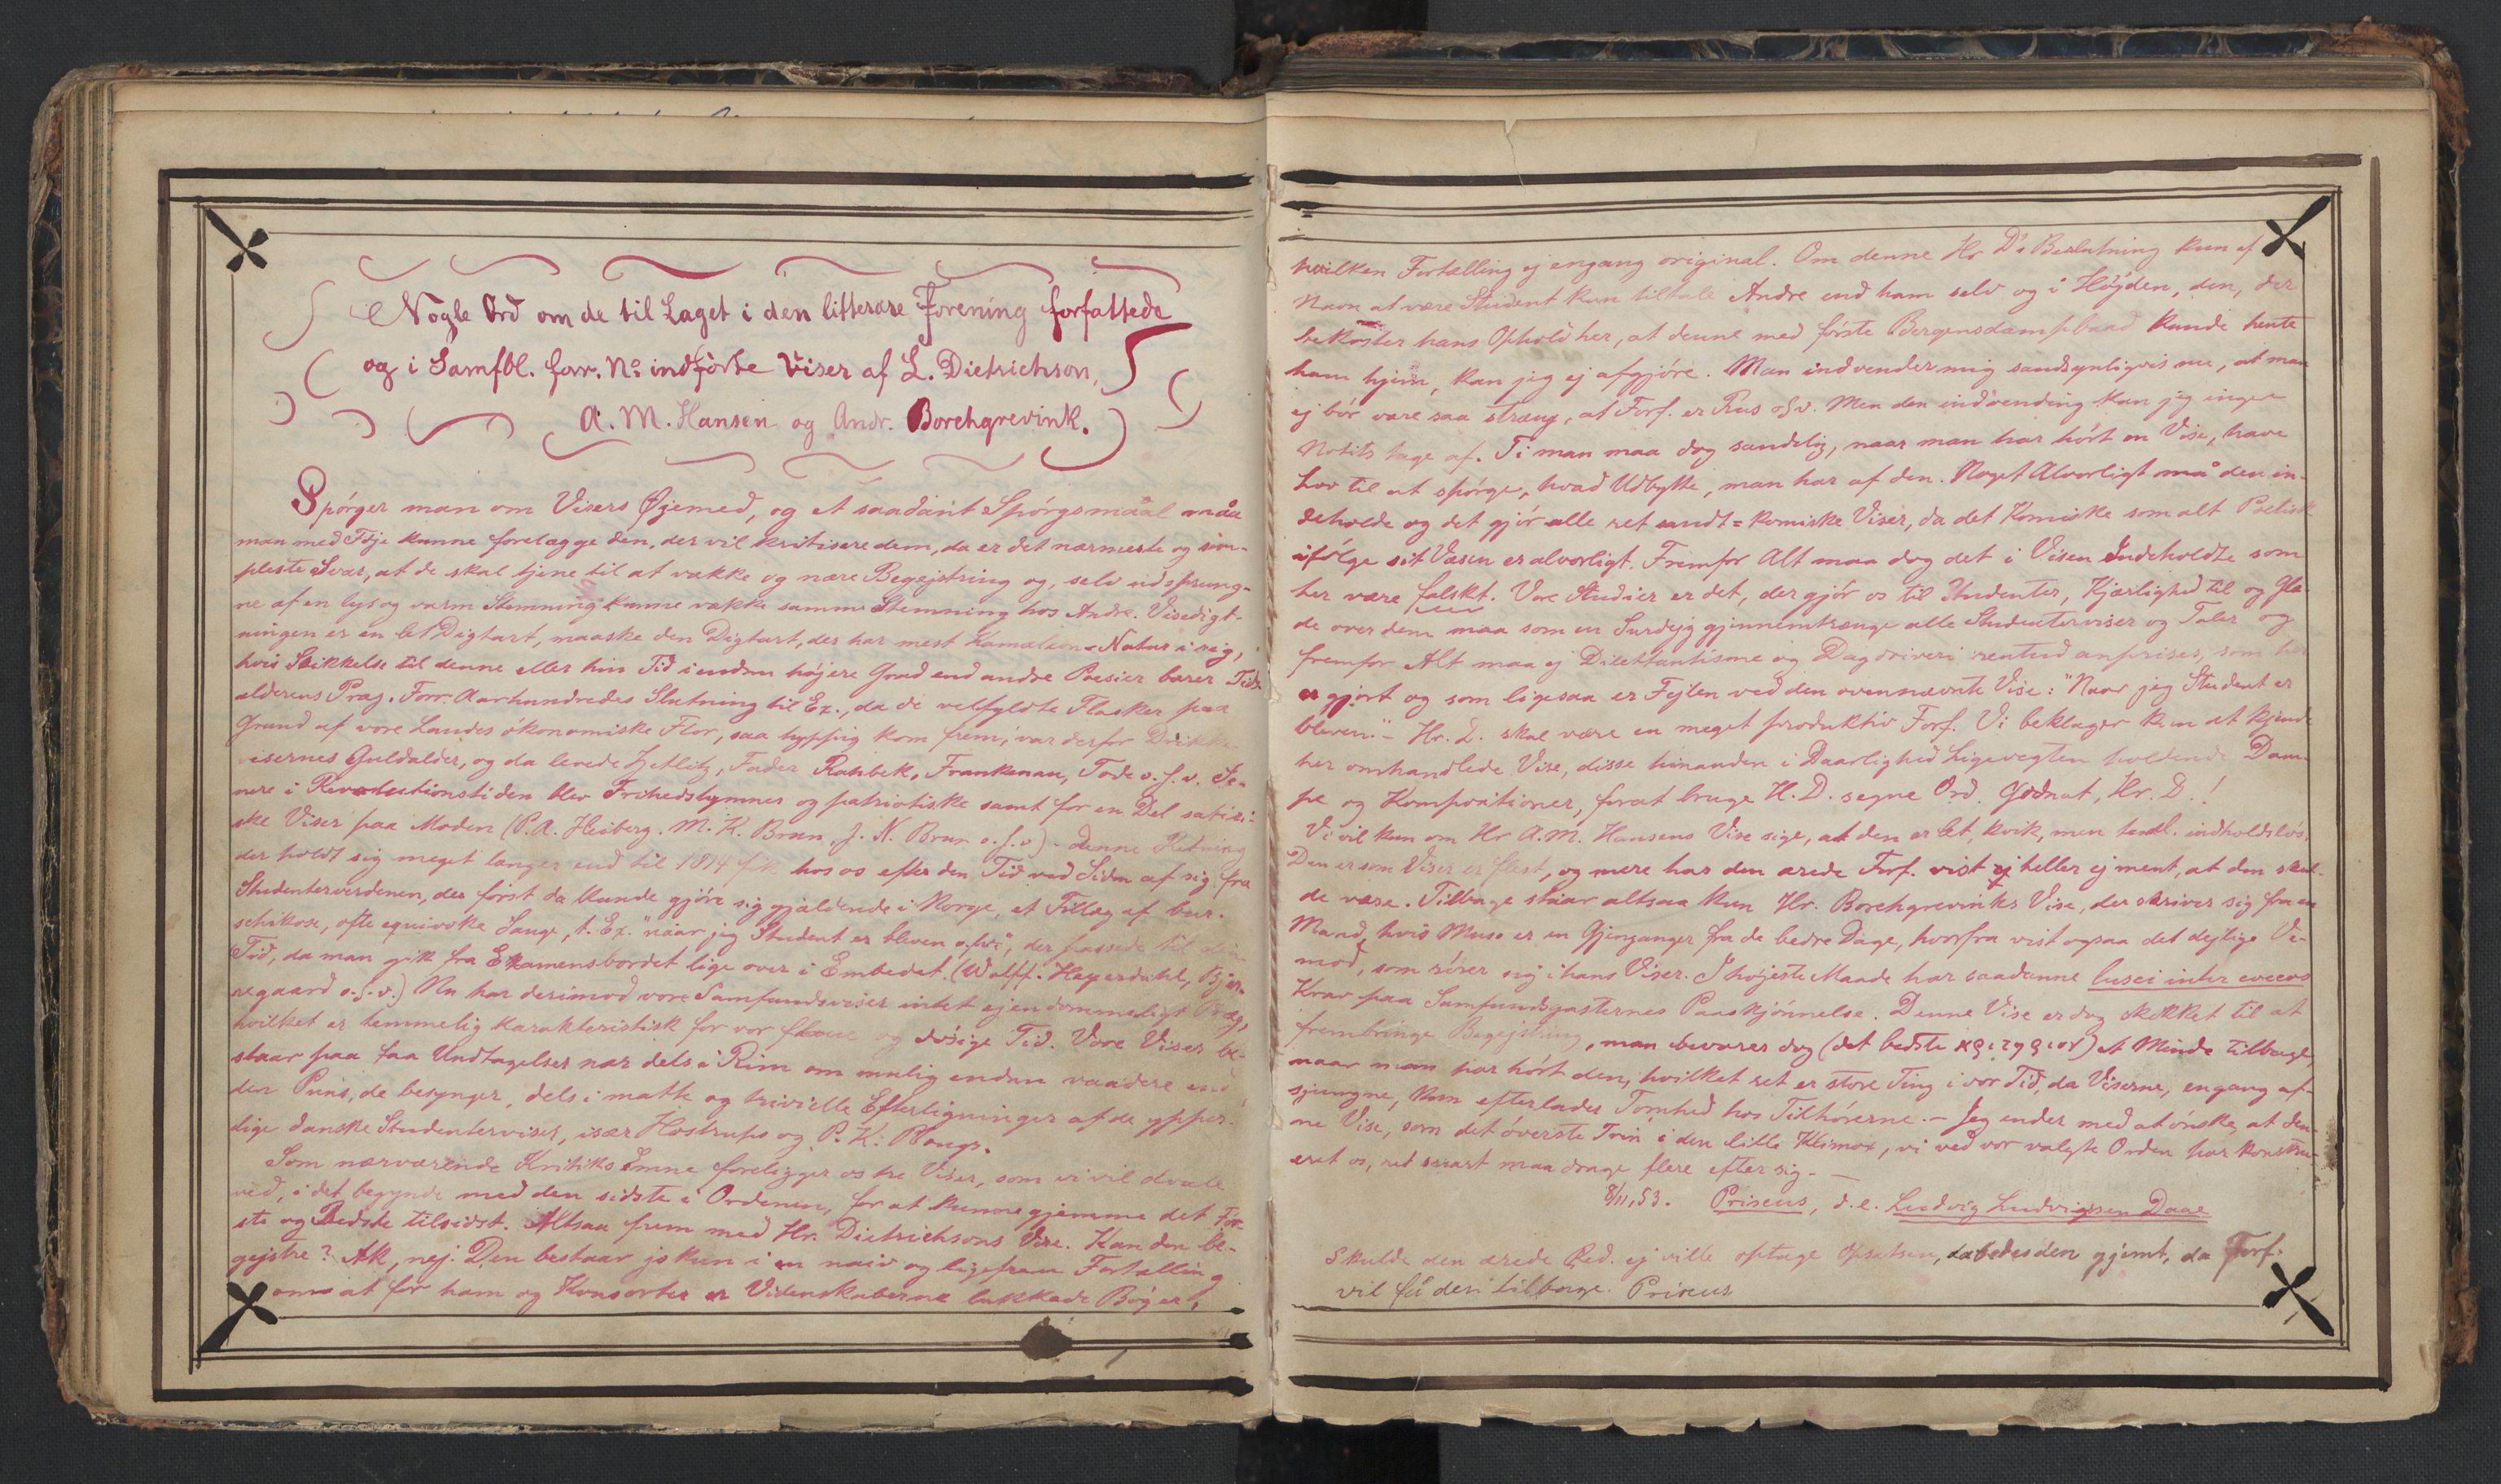 Nogle Ord om de til Laget i den litterære Forening forfattede
og i Samfbl. forr. No indførte Viser af L. Dietrichson,
A. M. Hansen og Andr. Borchgrevink.
Spörger man om Visers Øjemed, og et saadant Spörgsmaal maa
man med Föje kunne forelægge den, der vil kritisere dem, da er det nærmeste og sim-
pleste Svar, at de skal tjene til at vække og nære Begejstring og, selv udsprung-
ne af en lys og varm Stemning kunne vække samme Stemning hos Andre. Visedigt-
ningen er en let Digtart, maaske den Digtart, der har mest Kamæleon-Natur i sig,
hvis Skikkelse til denne eller hin Tid i endnu höjere Grad end andre Poesier bærer Tids-
alderens Præg. Forr. Aarhundredes Slutning til Ex., da de velfyldte Flasker paa
Grund af vore Landes ökonomiske Flor, saa hyppig kom frem, var derfor Drikke-
visernes Guldalder, og da levede Zetlitz, Fader Rahbek, Frankenau, Tode o. s. v. Se-
nere i Revolutionstiden blev Frihedshymner og patriotiske samt for en Del satiri-
ske Viser paa Moden (P. A. Heiberg. M. K. Brun, J. N. Brun o. s. v) - denne Retning
der holdt sig meget længer end til 1814 fik hos os efter den Tid ved Siden af sig fra
Studenterverdenen, der först da kunde gjöre sig gjældende i Norge, et Tillæg af bur-
schikose, ofte equivoke Sange, t. Ex. "naar jeg Student er bleven o.s.v.", der passede til den
Tid, da man gik fra Examensbordet lige over i Embedet. (Wolff. Heyerdahl, Bjer-
regaard o.s.v.) Nu har derimod vore Samfundsviser intet ejendommeligt Præg,
hvilket er temmelig karakteristisk for vor flaue og dösige Tid. Vore Viser be-
staar paa faa Undtagelser nær dels i Rim om mulig endnu vandere end
den Puns, de besynger, dels i matte og trivielle Efterligninger af de ypper-
lige danske Studenterviser, især Hostrups og P. K. Plougs.
Som nærværende Kritiks Emne foreligger os tre Viser, som vi vil dvæle
ved, i det begynde med den sidste i Ordenen, for at kunne gjemme det För-
ste og Bedste tilsidst. Altsaa frem med Hr. Dietrichsons Vise. Kan den be-
gejstre? Ak, nej. Den bestaar jo kun i en naiv og ligefrem Fortælling
om at for ham og Konsorter er Videnskaberne lukkede Böger,
hvilken Fortælling ej engang original. Om denne Hr D's Beslutning kun af
Navn at være Student kun tiltale Andre end ham selv og i Höjden, den, der
bekoster hans Ophold her, at denne med förste Bergensdampbaad kunde hente
ham hjem, kan jeg ej afgjöre. Man indvender mig sandsynligvis nu, at man
ej bör være saa stræng, at Forf. er Rus osv. Men den indvending kan jeg ingen
Notits tage af. Ti man maa dog sandelig, naar man har hört en Vise, have
Lov til at spörge, hvad Udbytte, man har af den. Noget Alvorligt må den in-
deholde og det gjör alle ret sandt-komiske Viser, da det Komiske som alt Poetisk
ifölge sit Væsen er alvorligt. Fremfor Alt maa dog det i Visen Indeholdte som
her være falskt. Vore Studier er det, der gjör os til Studenter, Kjærlighed til og Glæ-
de over dem maa som en Surdejg gjennemtrænge alle Studenterviser og Taler og
fremfor Alt maa ej Dilettantisme og Dagdriveri rentud anprises, som her
er gjort og som ligesaa er Fejlen ved den ovennævnte Vise: "Naar jeg Student er
bleven." - Hr. D. skal være en meget produktiv Forf. Vi beklager kun at kjende
her omhandlede Vise, disse hinanden i Daarlighed Ligevegten holdende Dam-
pe og Kompositioner, forat bruge H. D. s egne Ord. Godnat, Hr. D.!
Vi vil kun om Hr A. M. Hansens Vise sige, at den er let, kvik, men temml. indholdslös.
Den er som Viser er flest, og mere har den ærede Forf. vist ej heller ej ment, at den skul-
de være. Tilbage staar altsaa kun Hr. Borchgrevinks Vise, der skriver sig fra en
Mand, hvis Muse er en Gjenganger fra de bedre Dage, hvorfra vist ogsaa det dejlige Ve-
mod, som rörer sig i hans Viser. I höjeste Maade har saadanne lusci inter coecos
Krav paa Samfundsgasternes Paaskjönnelse. Denne Vise er dog skikket til at
frembringe Begejstring, man bevarer dog (det bedste κριτηριον) et Minde tilbage,
naar man har hört den, hvilket ret er store Ting i vor Tid, da Viserne, engang af-
sjungne, kun efterlader Tomhed hos Tilhörerne. - Jeg ender med at önske, at den-
ne Vise, som det överste Trin i den lille Klimax, vi ved vor valgte Orden har konstru-
eret os, ret snart maa drage flere efter sig. -
8/11, 53. Priscus, d. e. Ludvig Ludvigsen Daae
Skulde den ærede Red. ej ville optage Opsatsen, da bedes den gjemt, da Forf.
vil få den tilbage. Priscus